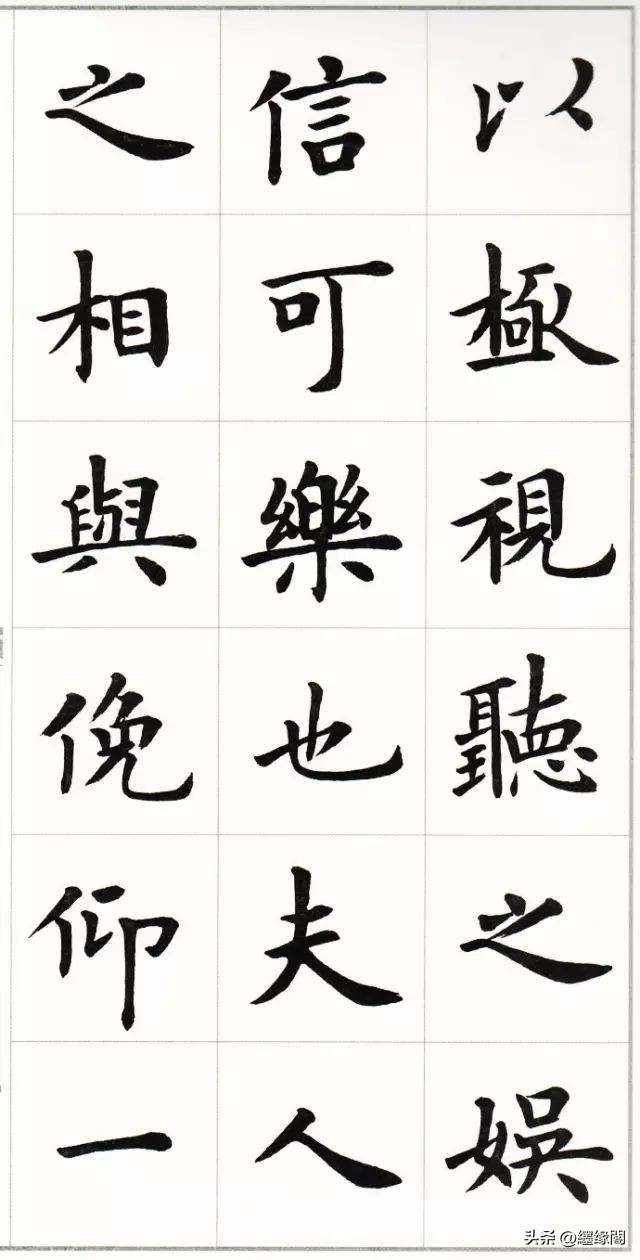 以極視聽之娛
信可樂也夫人
之相與俛仰一
头条 @纒缘閣